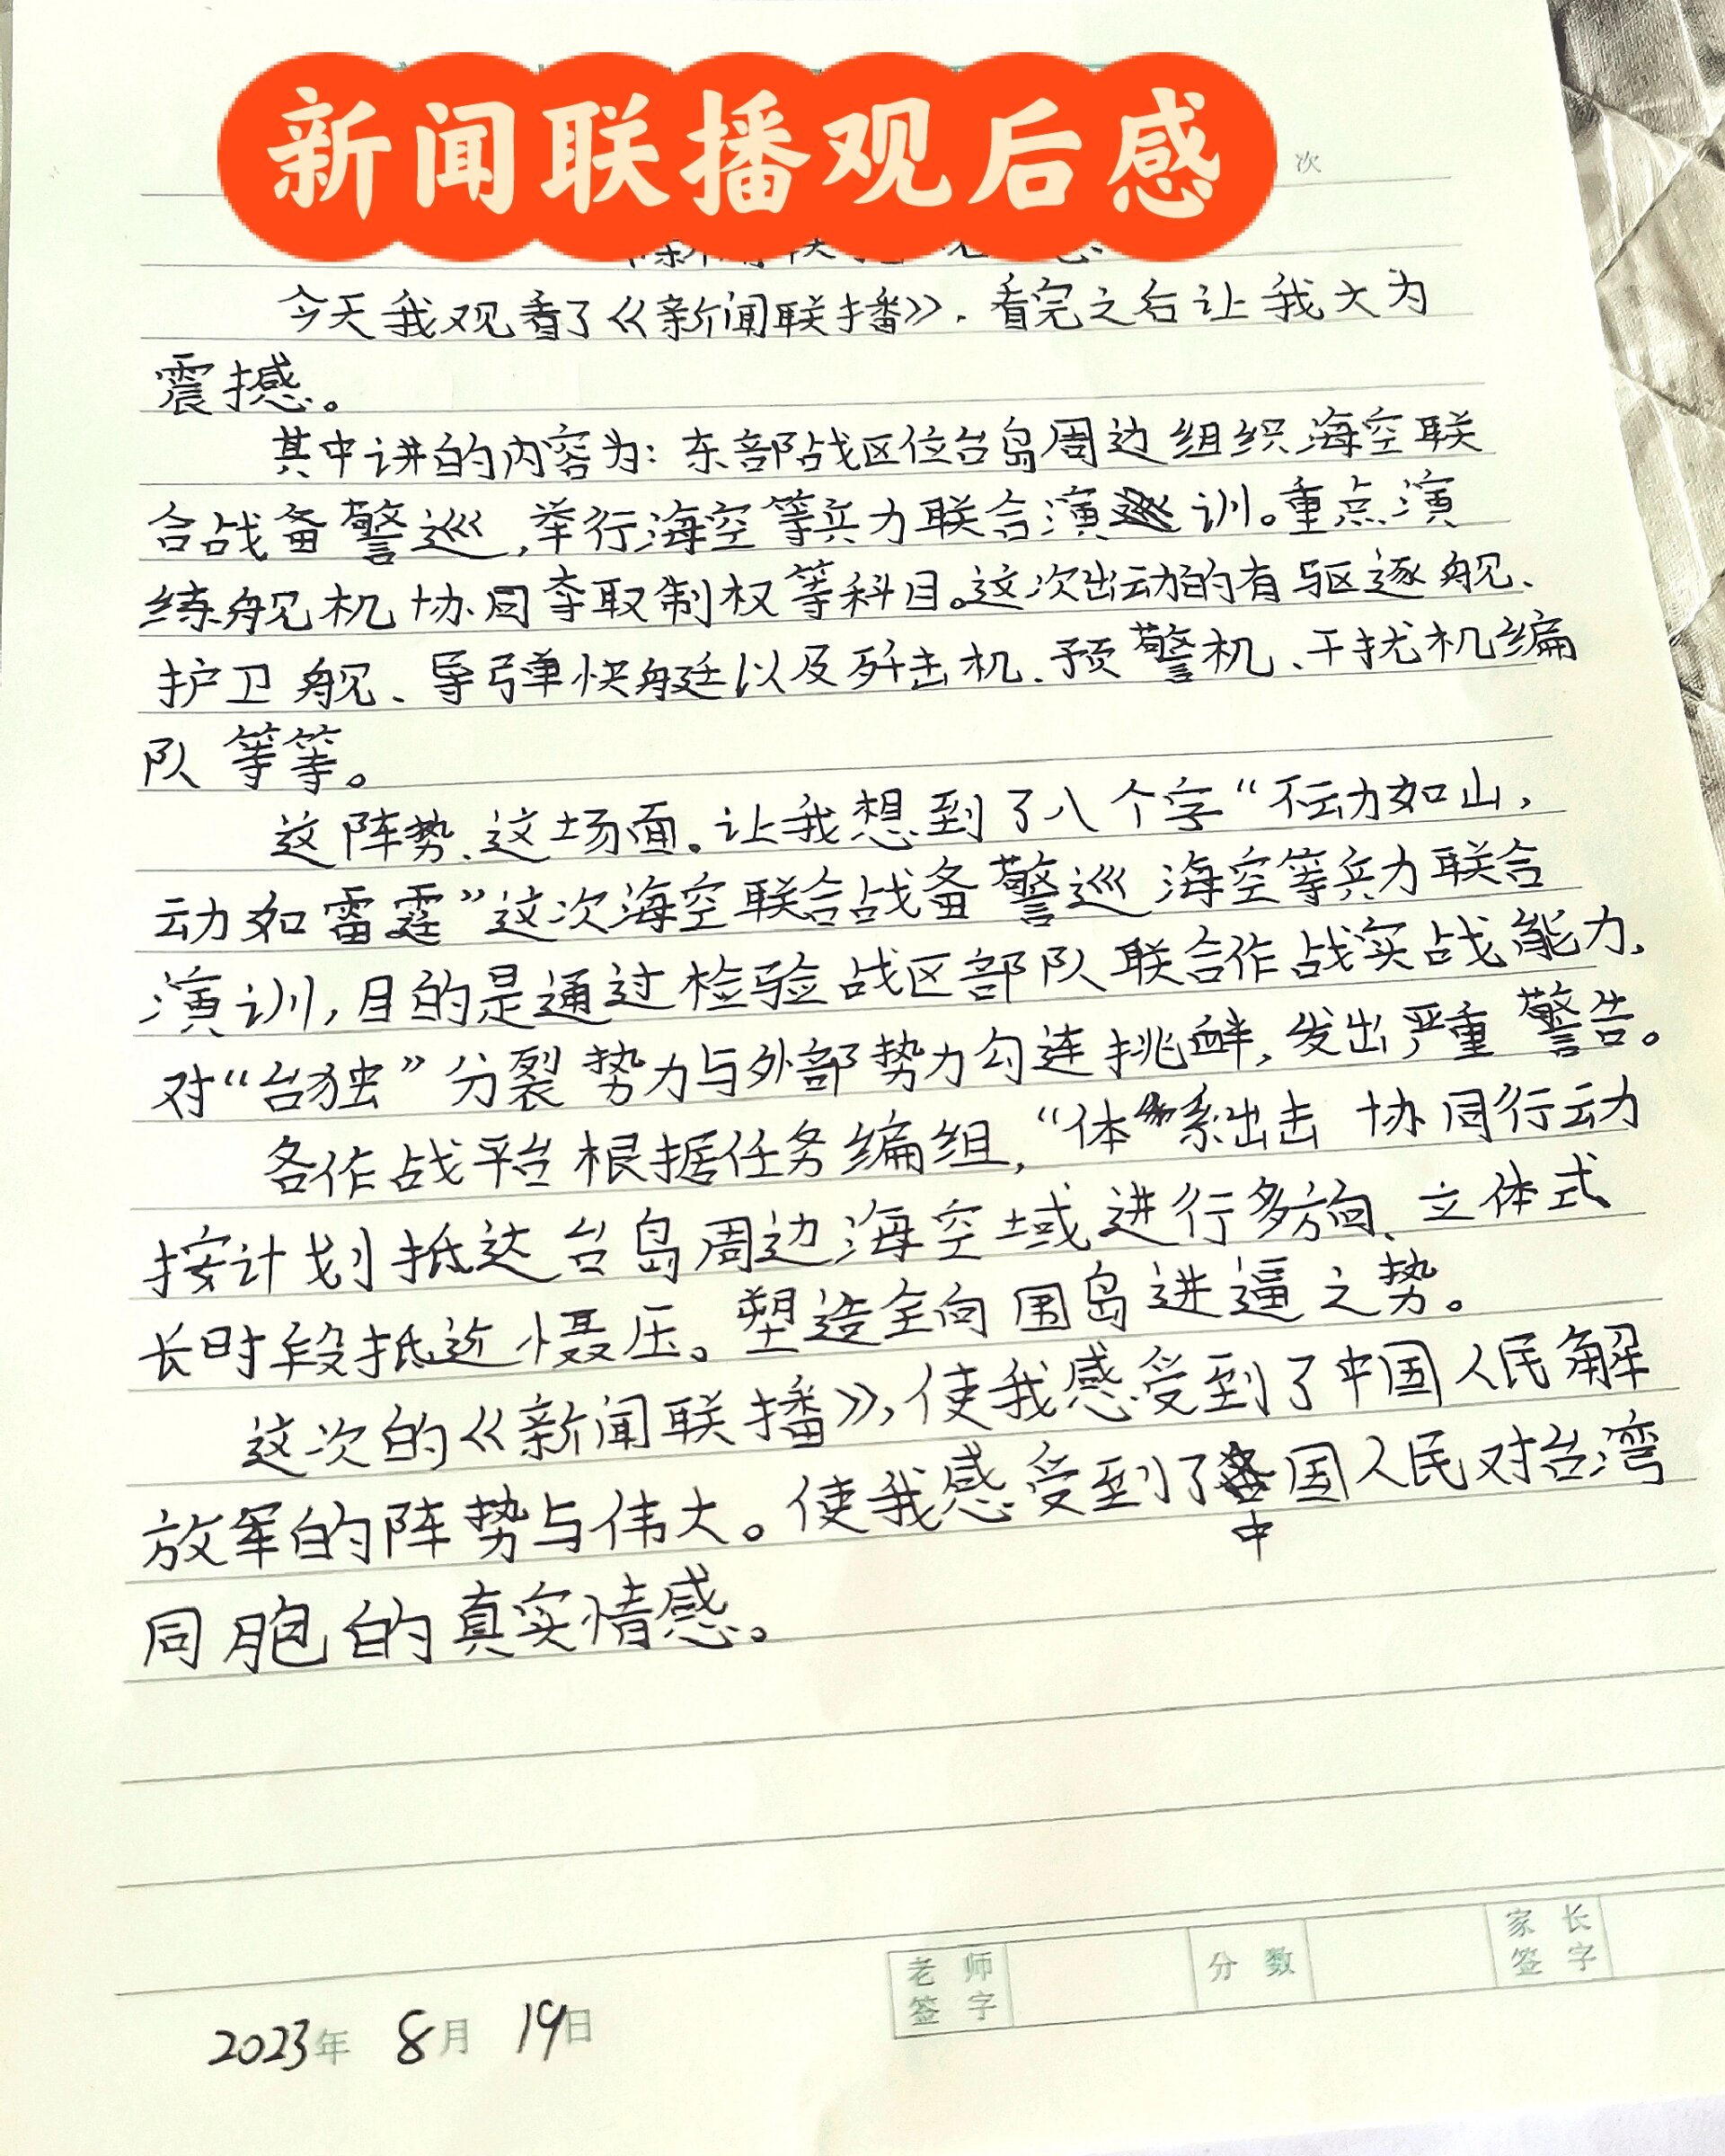 新闻联播观后感
次
今天我观看了《新闻联播》，看完之后让我大为
震撼。
其中讲的内容为：东部战区位台岛周边组织海空联
合战备警巡，举行海空等兵力联合演训。重点演
练舰机协同夺取制权等科目。这次出动的有驱逐舰、
护卫舰、导弹快艇以及歼击机、预警机、干扰机编
队等等。
这阵势、这场面。让我想到了八个字“不动如山，
动如雷霆”这次海空联合战备警巡 海空等兵力联合
演训，目的是通过检验战区部队联合作战实战能力，
对“台独”分裂势力与外部势力勾连挑衅，发出严重警告。
各作战平台根据任务编组，“体系出击 协同行动
按计划抵达台岛周边海空域进行多方向、立体式
长时段抵近慑压。塑造全向围岛进逼之势。
这次的《新闻联播》，使我感受到了中国人民解
放军的阵势与伟大。使我感受到了中国人民对台湾
同胞的真实情感。
老师签字 分数 家长签字
2023年 8月 19日